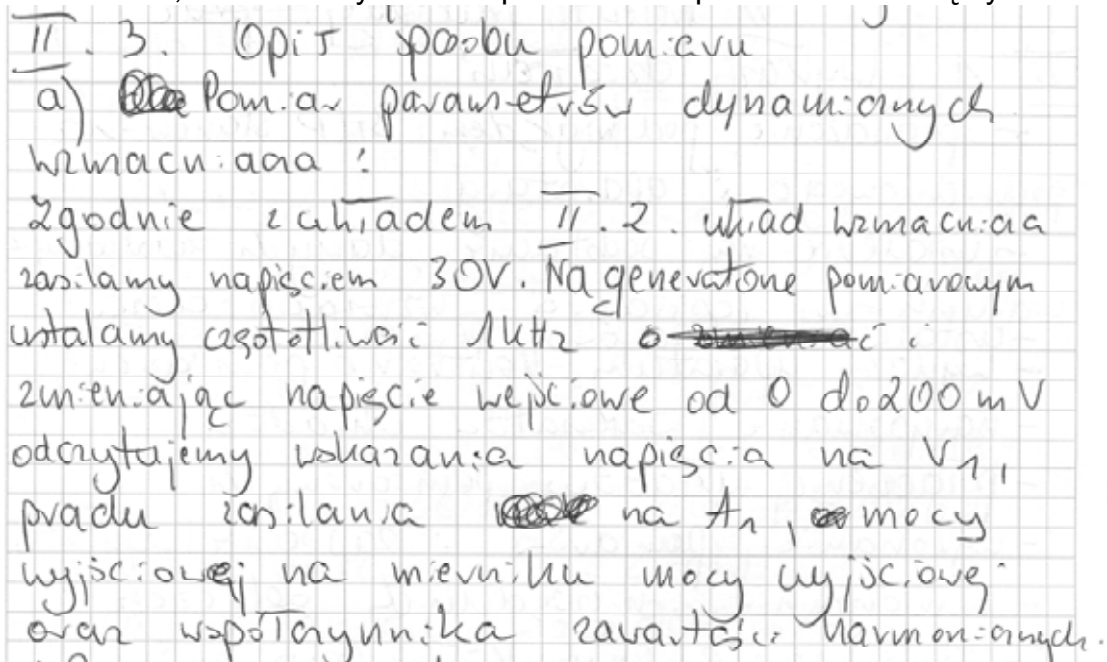 II. 3. Opis sposobu pomiaru
a) Pomiar parametrów dynamicznych
wzmacniacza :
Zgodnie z układem II.2. układ wzmacniacza
zasilamy napięciem 30V. Na generatorze pomiarowym
ustalamy częstotliwość 1kHz i
zmieniając napięcie wejściowe od 0 do 200 mV
odczytujemy wskazania napięcia na V1,
prądu zasilania na A1, mocy
wyjściowej na mierniku mocy wyjściowej
oraz współczynnika zawartości harmonicznych.